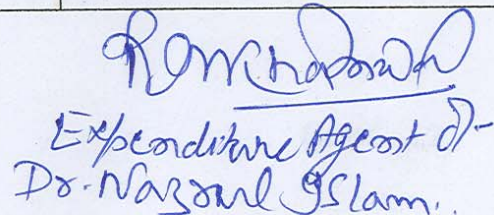 Expenditure Agent of
Dr. Nazrul Islam.